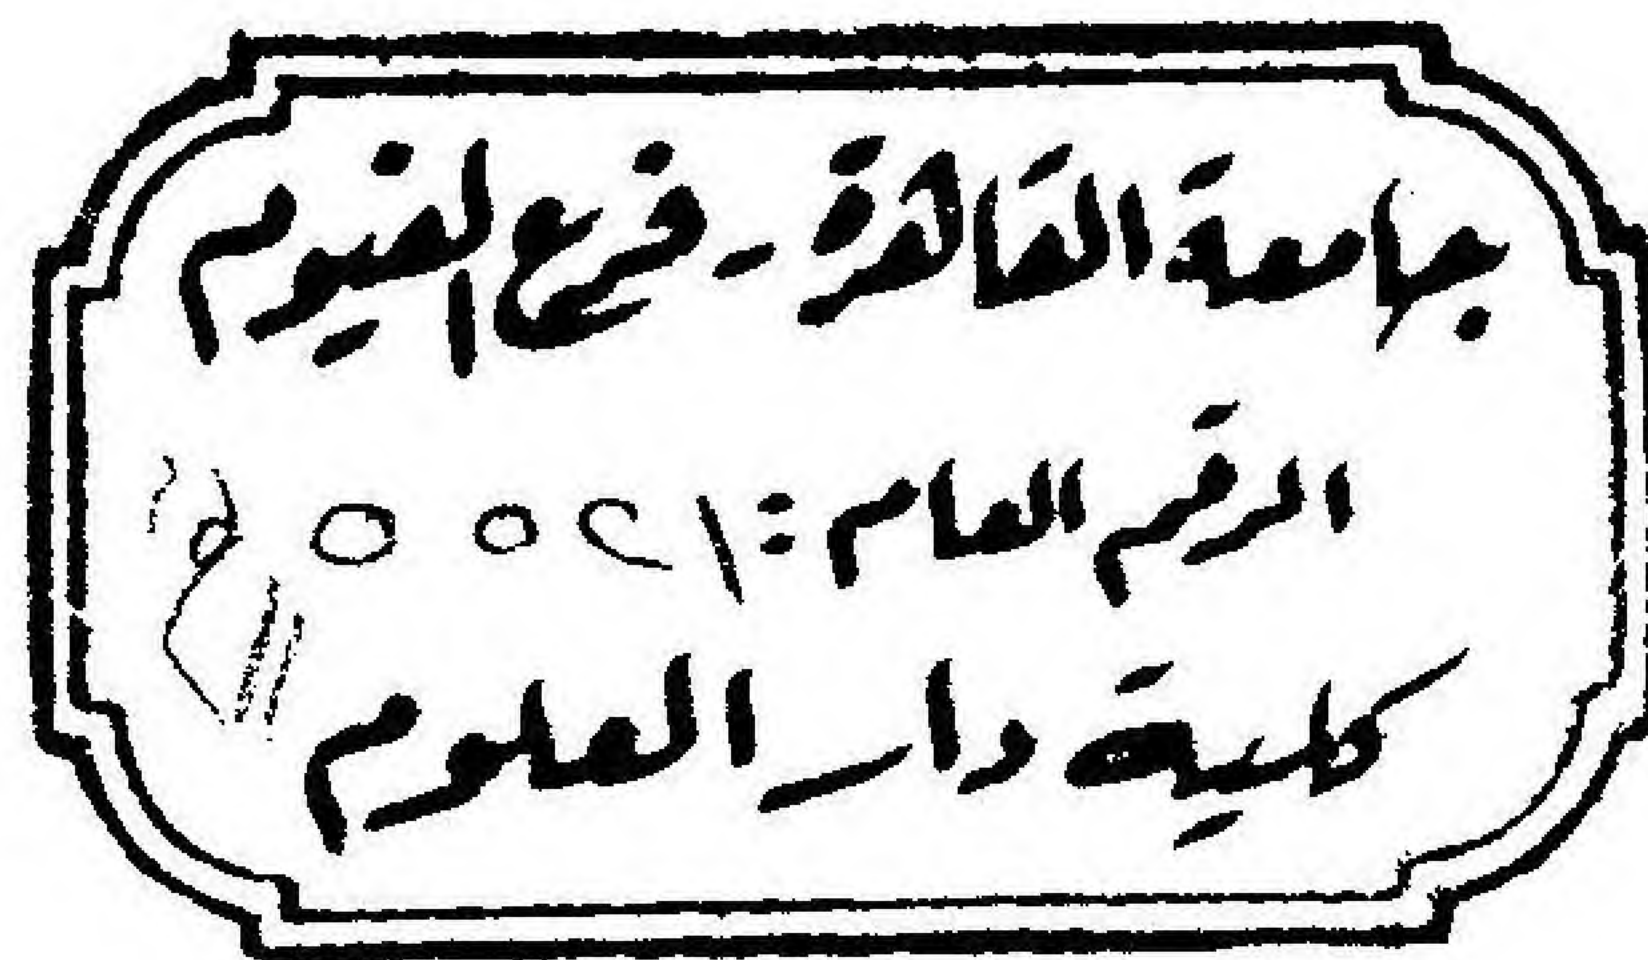 جامعة القاهرة - فرع الفيوم
الرقم العام:
كلية دار العلوم